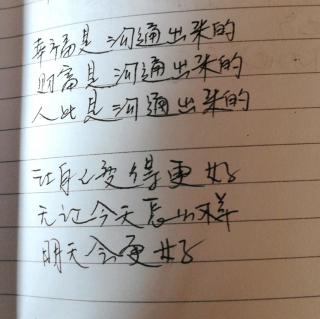 幸福是沟通出来的
财富是沟通出来的
人比是沟通出来的
让自心变得更好
无论今天怎么样
明天会更好